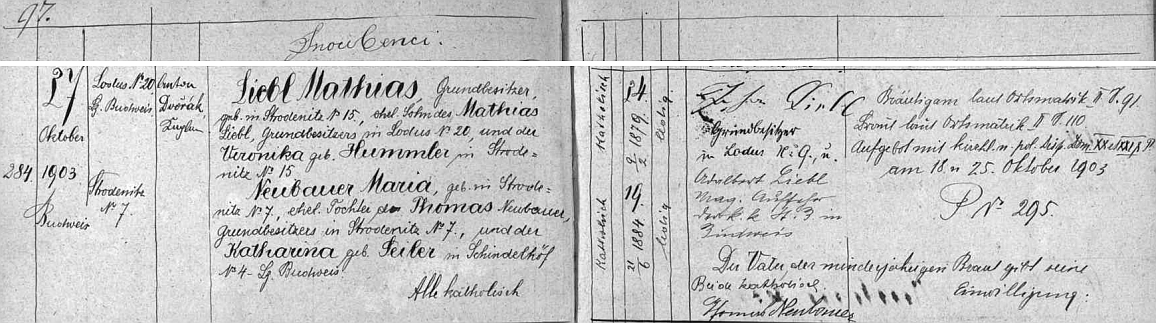 97.
Snoubenci.
27
Oktober
1903
284.
Budweis
Lodus N° 20
Lg. Budweis
Strodenitz
N° 7.
Anton
Dvořák,
Kaplan
Liebl Mathias, Grundbesitzer,
geb. in Strodenitz N° 15., ehel. Sohn des Mathias
Liebl, Grundbesitzers in Lodus N° 20, und der
Veronika geb. Hummler in Strode=
nitz N° 15.
Neubauer Maria, geb. in Strode=
nitz N° 7., ehel. Tochter des Thomas Neubauer,
Grundbesitzers in Strodenitz N° 7., und der
Katharina geb. Peiler in Schindelhöf
N° 4 Lg. Budweis
Alle katholisch
Katholisch
24.
2/2 1879.
ledig
Katholisch
19.
21/6 1884
ledig
Liebl
Grundbesitzer
in Lodus N: 9., u.
Adalbert Liebl
Mag. Aufseher
der k. k. St. B in
Budweis
Beide katholisch.
Thomas Neubauer
Bräutigam laut Ortsmatrik II S. 91.
Braut laut Ortsmatrik II S. 110
Aufgebot mit kirchl. u. pol. Disp.
am 18. u 25. Oktober 1903
P N° 295
Der Vater der minderjährigen Braut gibt seine
Einwilligung.